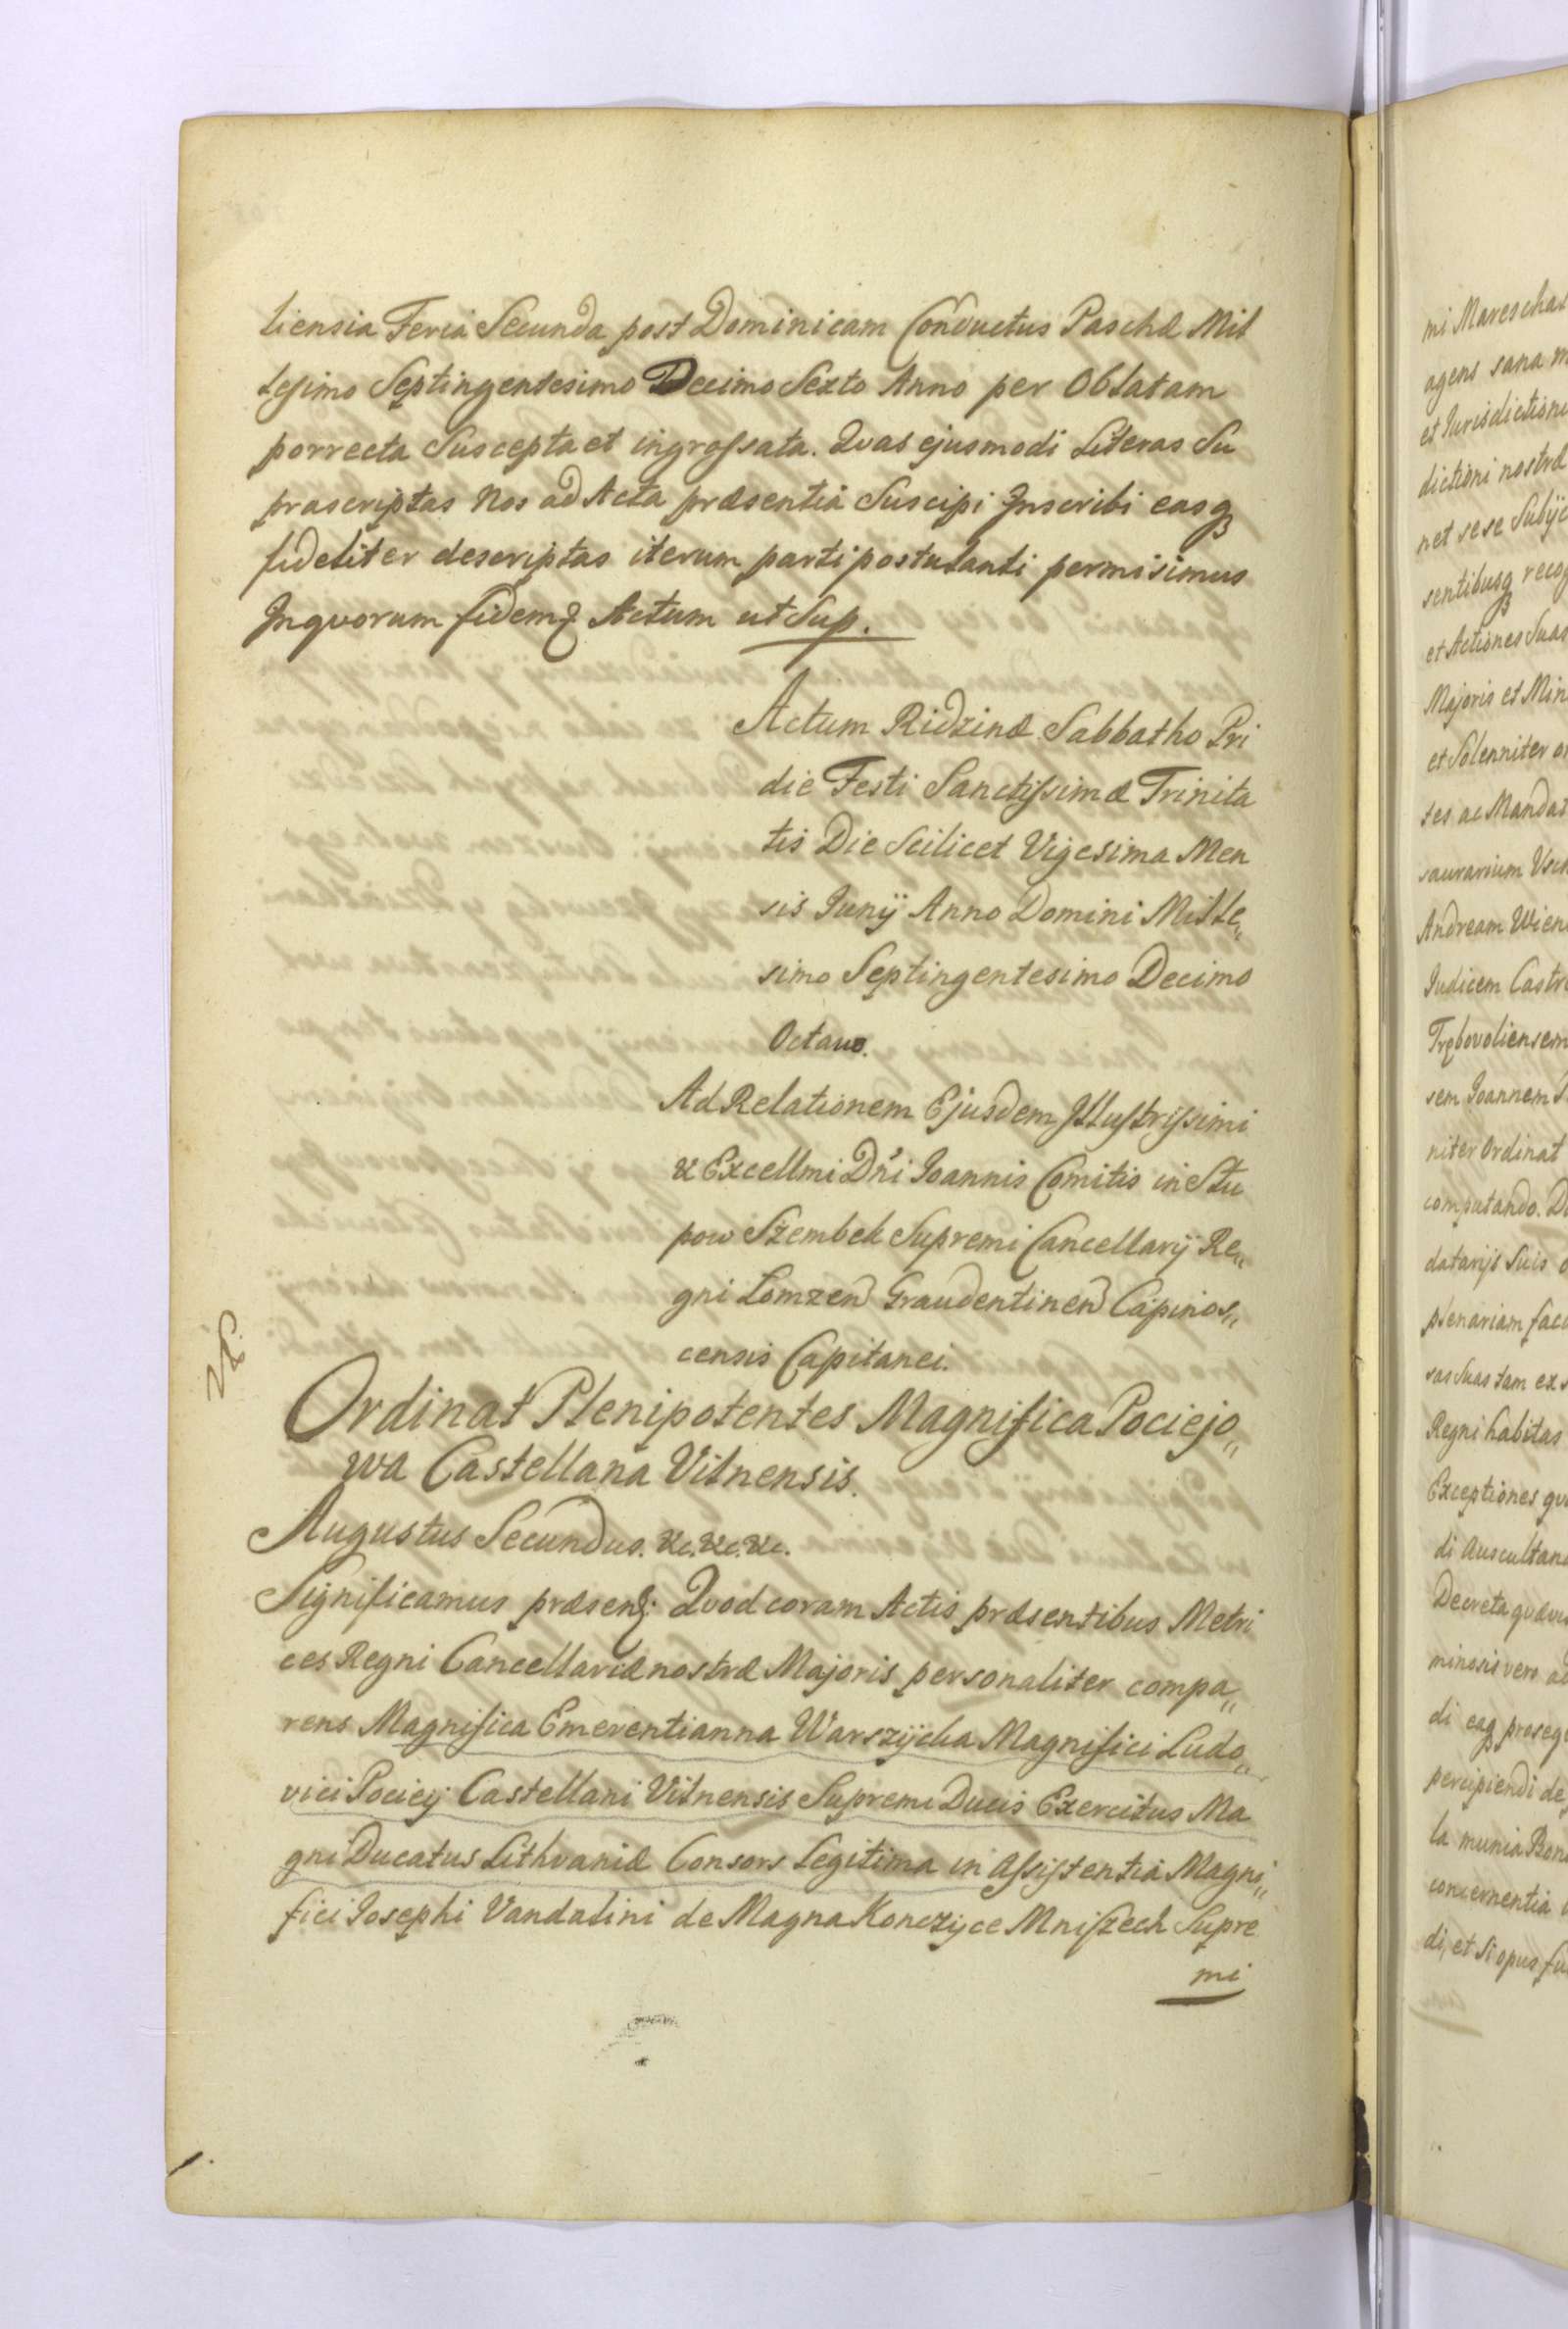 liensia Feria Secunda post Dominicam Conductus Paschæ Mil
lesimo Septingentesimo Decimo Sexto Anno per Oblatam
porrecta Suscepta et ingrossata. Quas ejusmodi Literas Su
prascriptas Nos ad Acta præsentia Suscipi Inscribi easq;
fideliter descriptas iterum parti postulanti permisimus
Inquorum fidem Actum ut Sup.
Actum Ridzinæ Sabbatho Pri
die Festi Sanctissimæ Trinita
tis Die Scilicet Vigesima Men
sis Junÿ Anno Domini Mille„
simo Septingentesimo Decimo
Octavo.
Ad Relationem Ejusdem Illustrissimi
& Excellmi Dñi Joannis Comitis in Stu
pow Szembek Supremi Cancellarÿ Re„
gni Lomzen Graudentinen Capinos„
censis Capitanei.
Ordinat Plenipotentes Magnifica Pociejo„
wa Castellana Vilnensis.
Augustus Secundus. &c. &c. &c.
Significamus præsen. Quod coram Actis præsentibus Metri
ces Regni Cancellariæ nostræ Majoris personaliter compa„
rens Magnifica Emerentianna Warszÿcka Magnifici Ludo„
vici Pociej Castellani Vilnensis Supremi Ducis Exercitus Ma
gni Ducatus Lithvaniæ Consors Legitima in Assistentia Magni„
fici Josephi Vandalini de Magna Konczÿce Mniszech Supre
mi
mi Mareschal
agens sana m
et Jurisdictioni
dictioni nostræ
net sese Subÿc
sentibusq; reco
et Actiones Suas
Majoris et Min
et Solenniter or
tes ac Mandat
Andream Wien
Judicem Castr
Trębovoliensem
sem Joannem
niter Ordinat
computando. D
datarÿs Suis
plenariam fac
sas Suas tam ex
Regni habitas
Exceptiones qu
di Auscultan
Decreta quævis
minosis vero ad
di eaq; proseq
percipiendi de
la munia Bon
concernentia
di, et Si opus fu